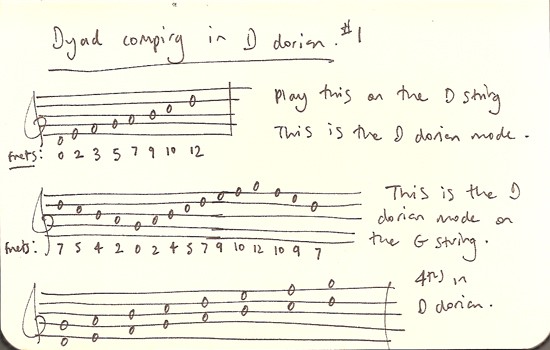 Dyad comping in D dorian. #1
Play this on the D string
This is the D dorian mode.
Frets: 0 2 3 5 7 9 10 12
This is the D
dorian mode on
the G string.
Frets: 7 5 4 2 0 2 4 5 7 9 10 12 10 9 7
4ths in
D dorian.